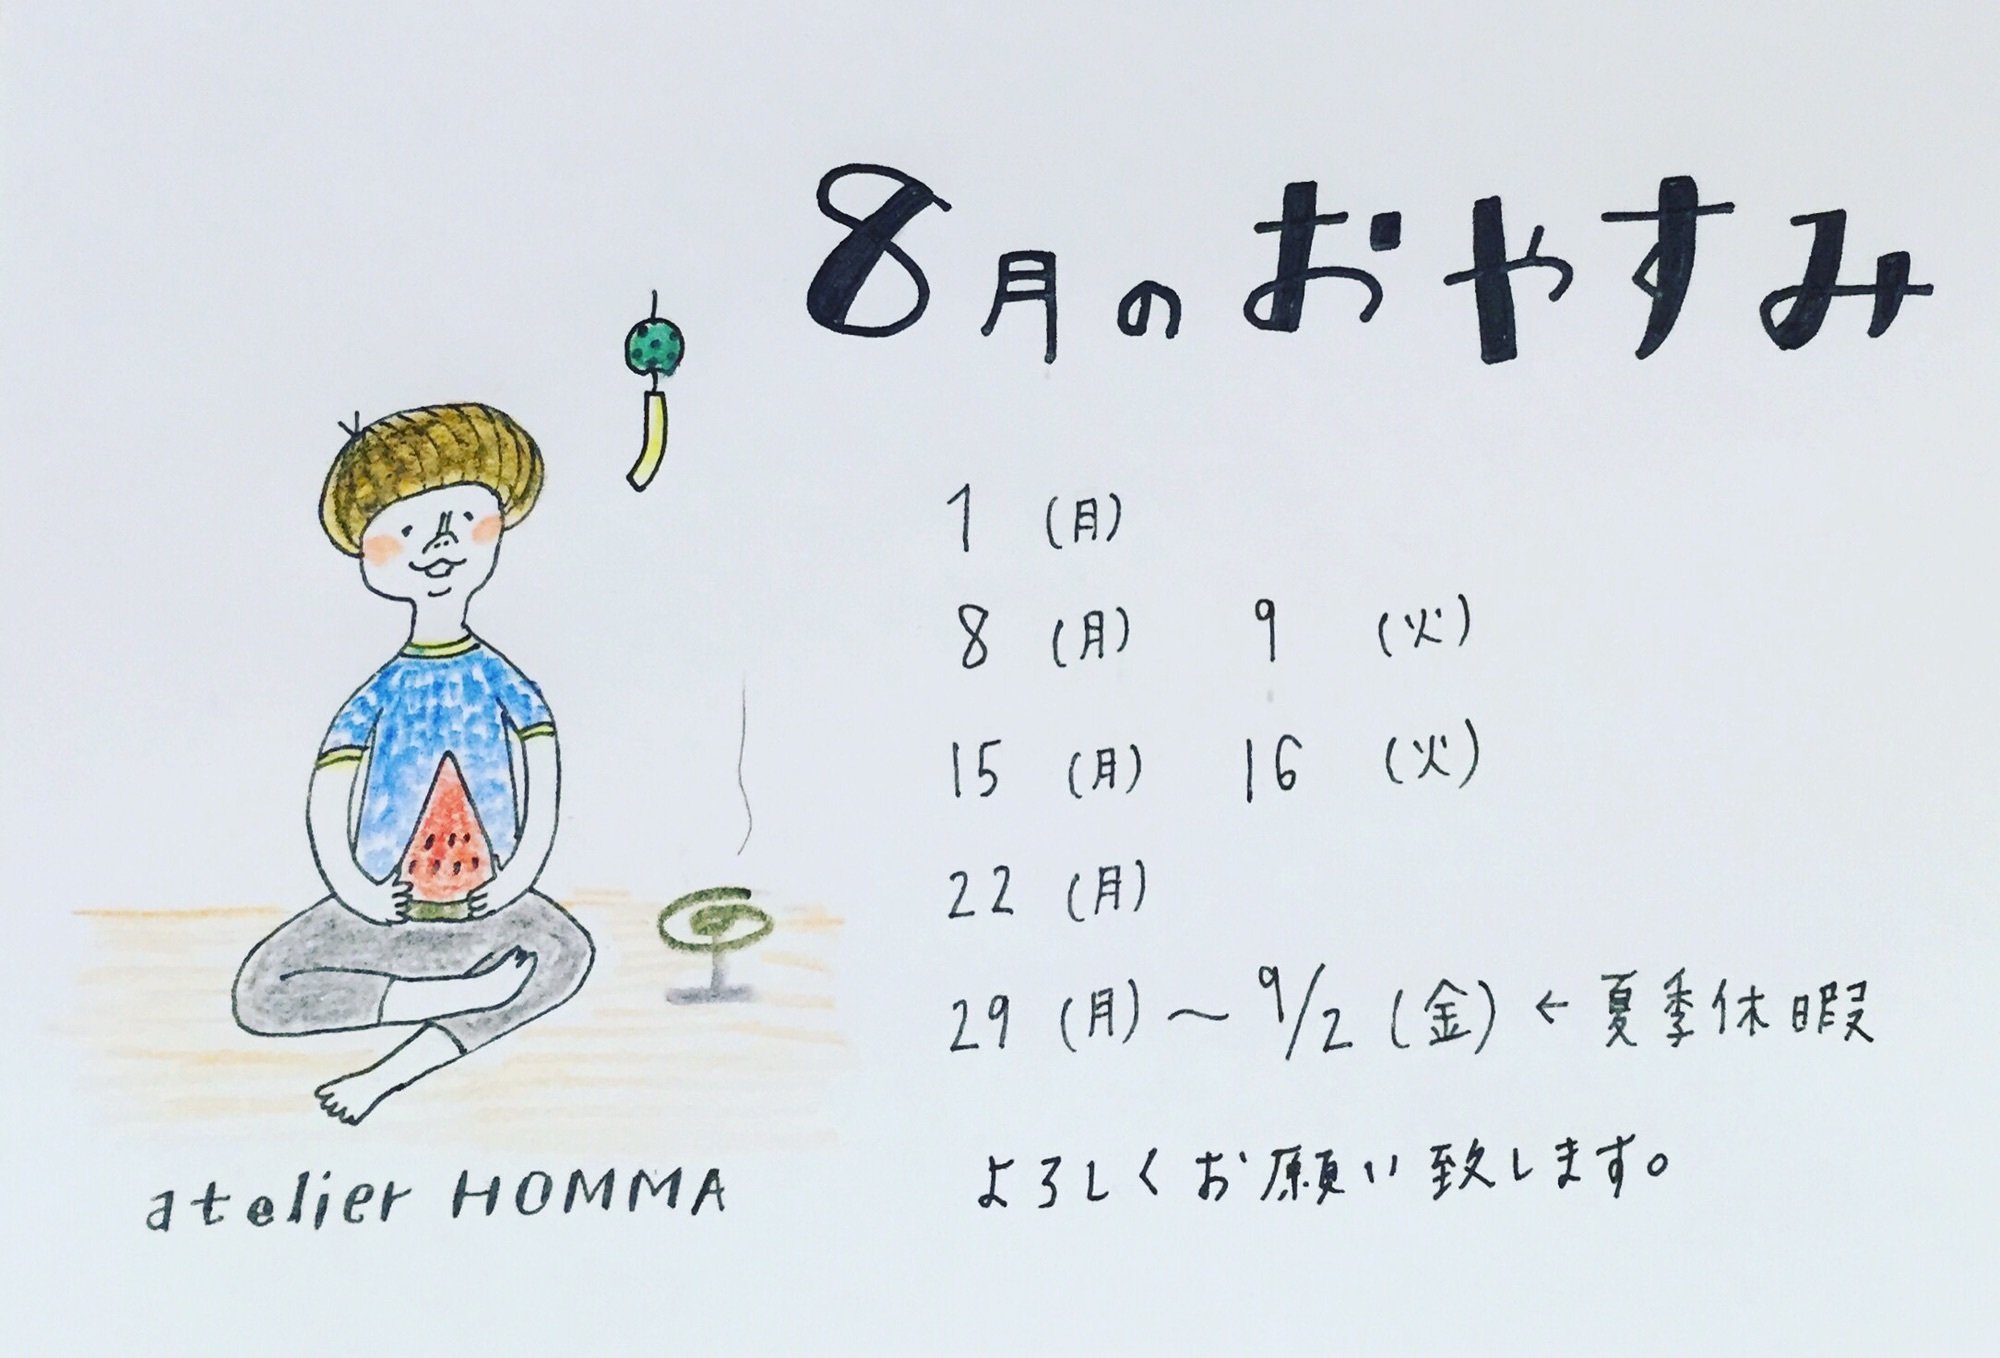 8月のおやすみ
1 (月)
8 (月) 9 (火)
15 (月) 16 (火)
22 (月)
29 (月) 〜 9/2 (金) ← 夏季休暇
よろしくお願い致します。
atelier HOMMA